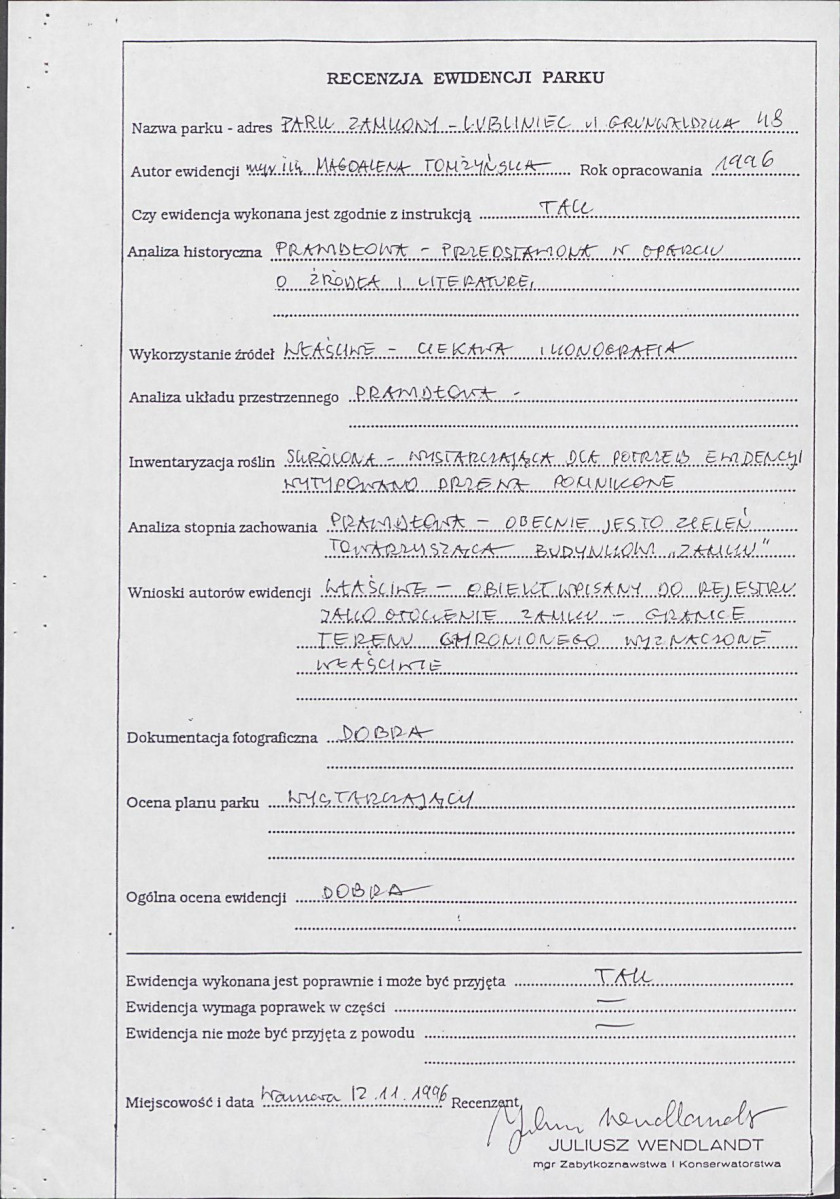 RECENZJA EWIDENCJI PARKU
Nazwa parku - adres PARK ZAMKOWY - LUBLINIEC ul GRUNWALDZKA 48
Autor ewidencji mgr inż MAGDALENA TOMŻYŃSKA Rok opracowania 1996
Czy ewidencja wykonana jest zgodnie z instrukcją TAK
Analiza historyczna PRAWIDŁOWA - PRZEDSTAWIONA W OPARCIU
O ŹRÓDŁA I LITERATURĘ,
Wykorzystanie źródeł WŁAŚCIWE - CIEKAWA IKONOGRAFIA
Analiza układu przestrzennego PRAWIDŁOWA -
Inwentaryzacja roślin SKRÓCONA - WYSTARCZAJĄCA DLA POTRZEB EWIDENCYI
WYTYPOWANO DRZEWA POMNIKOWE
Analiza stopnia zachowania PRAWIDŁOWA - OBECNIE JEST TO ZIELEŃ
TOWARZYSZĄCA BUDYNKOWI „ZAMKU"
Wnioski autorów ewidencji WŁAŚCIWE - OBIEKT WPISANY DO REJESTRU
JAKO OTOCZENIE ZAMKU - GRANICE
TERENU CHRONIONEGO WYZNACZONE
WŁAŚCIWIE
Dokumentacja fotograficzna DOBRA
Ocena planu parku WYSTARCZAJĄCY
Ogólna ocena ewidencji DOBRA
Ewidencja wykonana jest poprawnie i może być przyjęta TAK
Ewidencja wymaga poprawek w części —
Ewidencja nie może być przyjęta z powodu —
Miejscowość i data Warszawa 12.11.1996 Recenzent
Juliusz Wendlandt
JULIUSZ WENDLANDT
mgr Zabytkoznawstwa i Konserwatorstwa